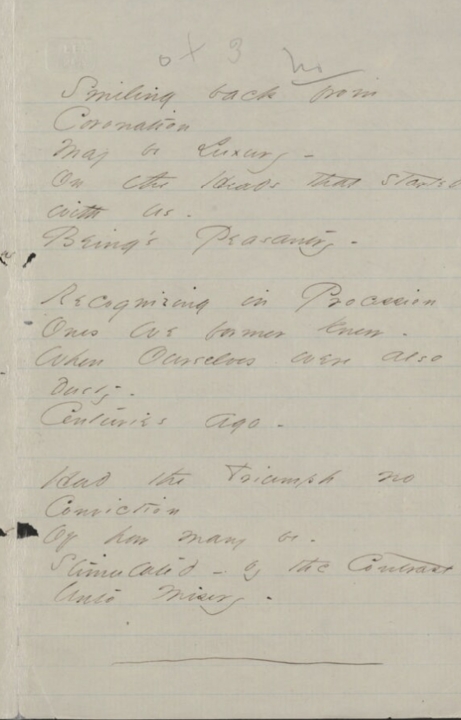 o x 3
Smiling back from
Coronation
May be Luxury -
On the Heads that started
with us -
Being's Peasantry -
Recognizing in Procession
Ones we former knew -
When Ourselves were also
Dusty -
Centuries ago -
Had the Triumph no
Conviction
Of how many be -
Stimulated - by the Contrast
Unto Misery -